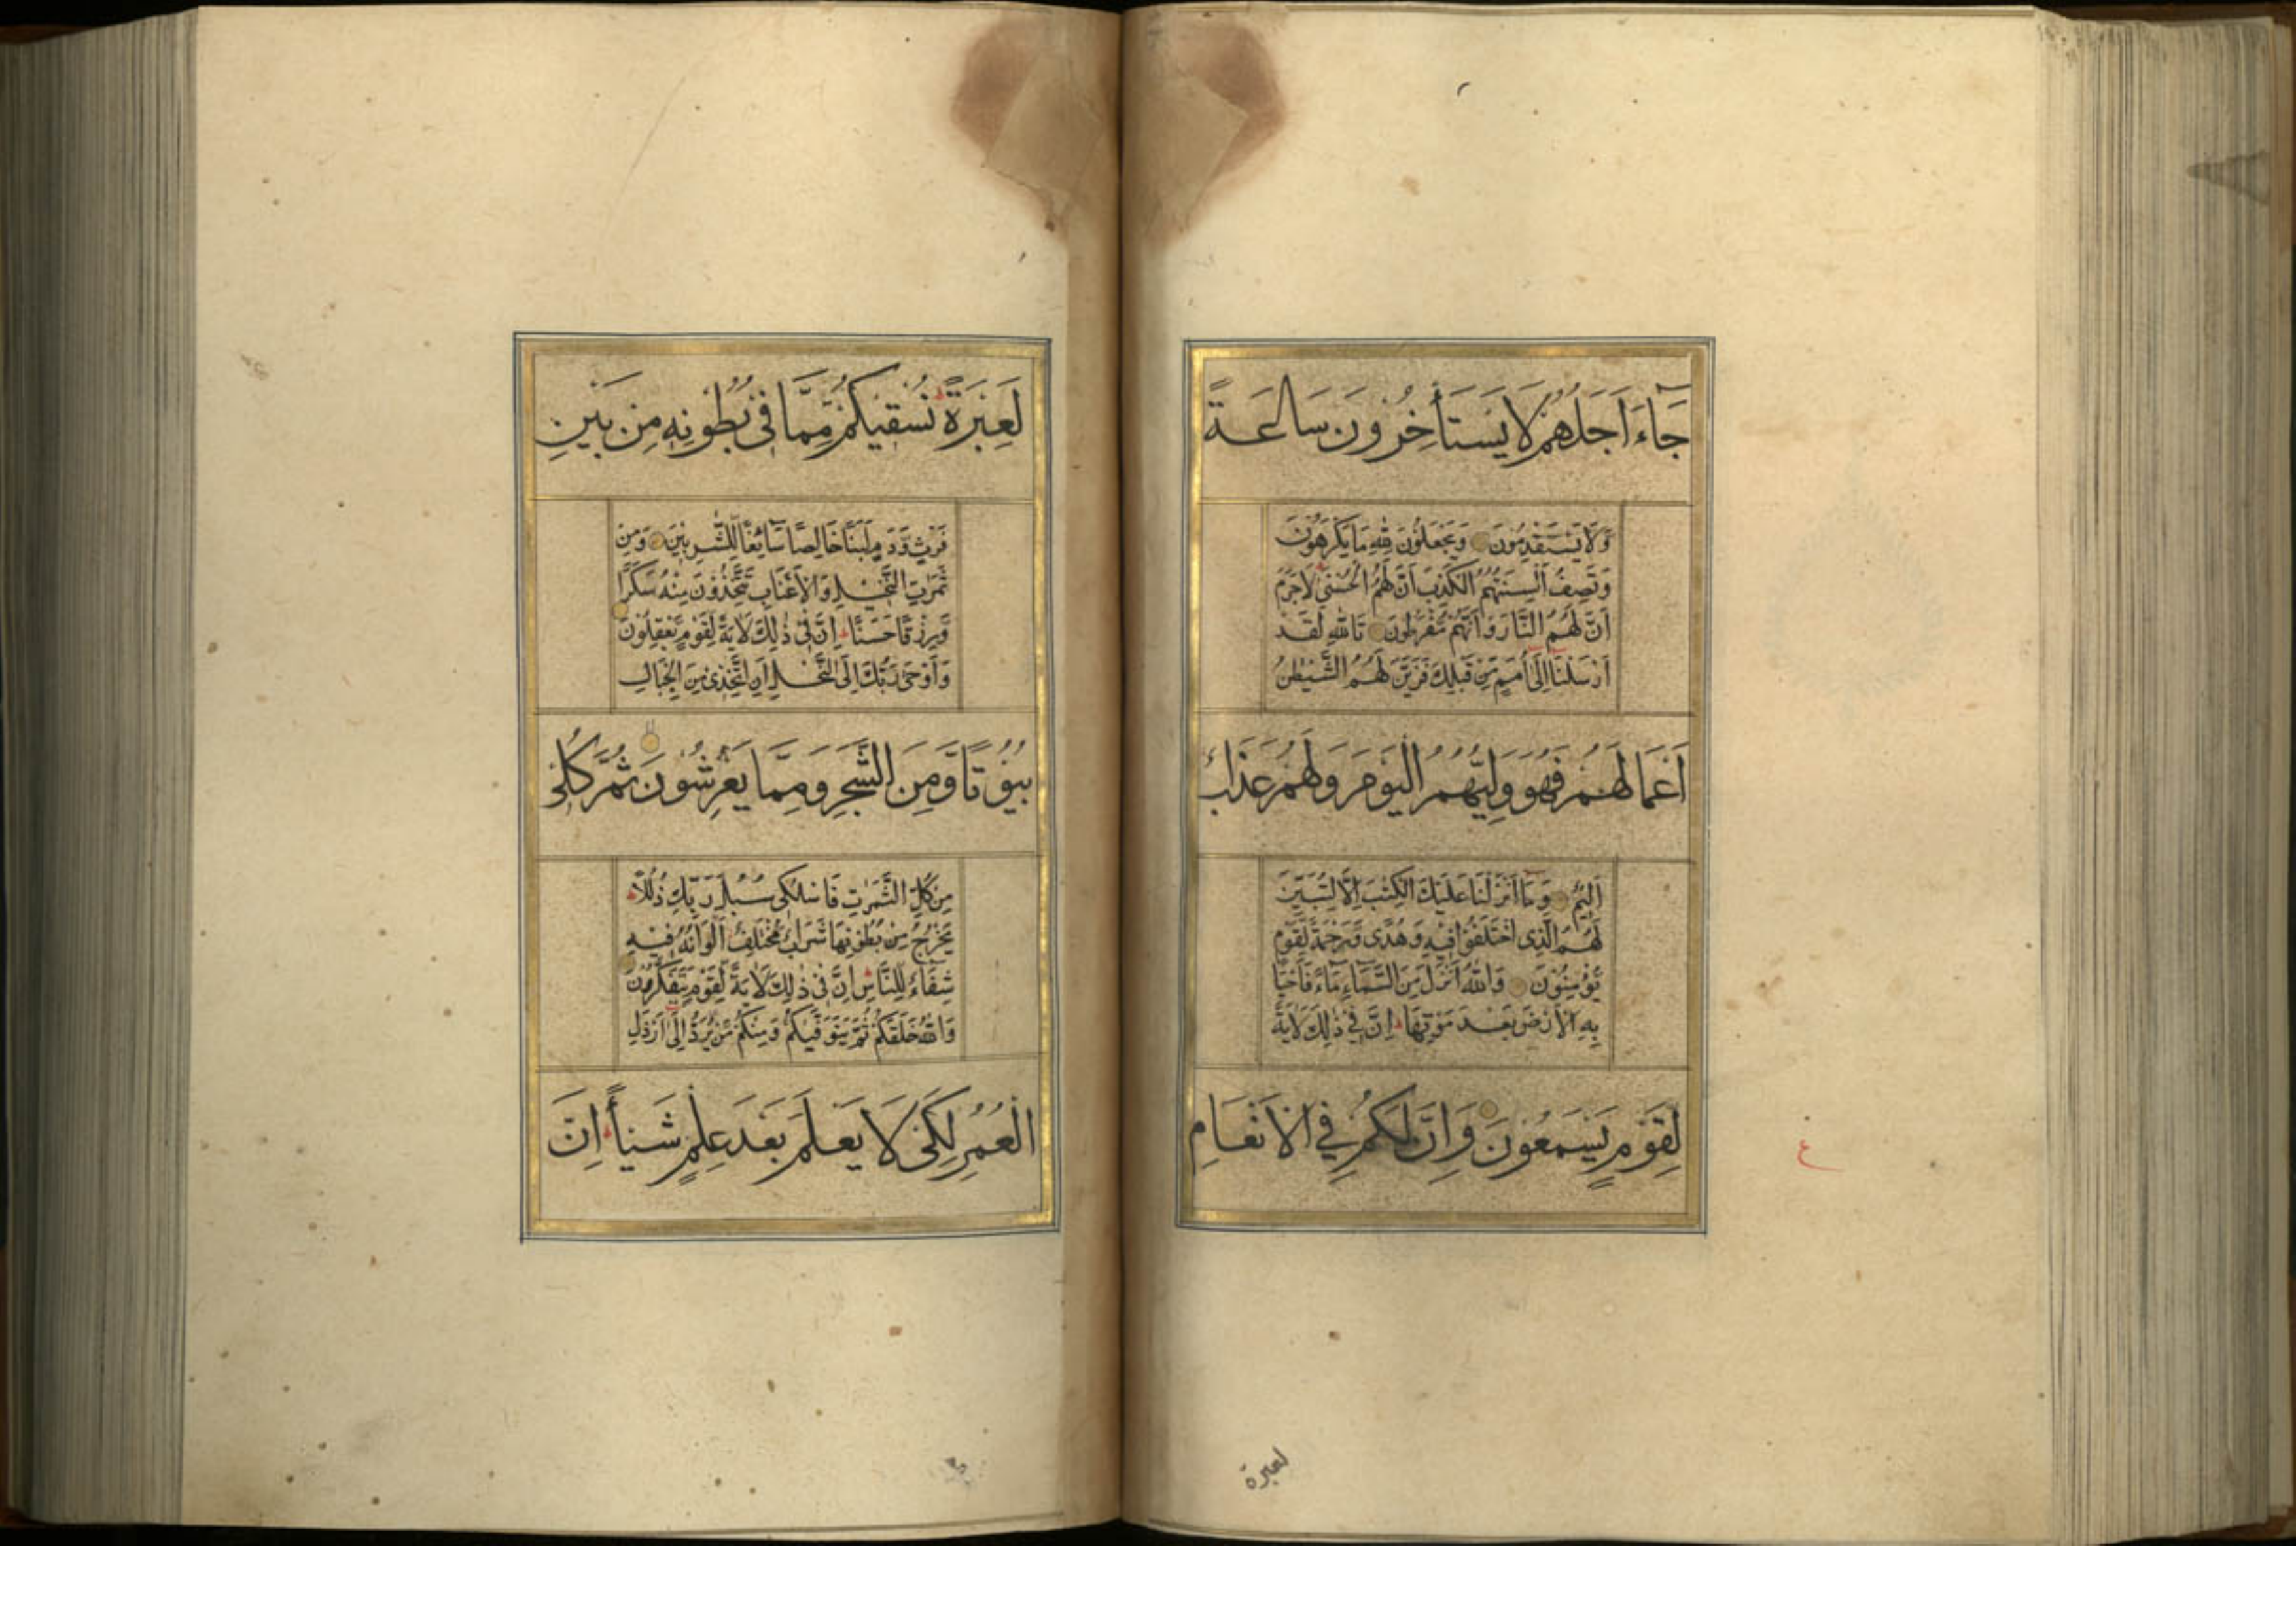 جَاءَ اَجَلُهُمْ لَا يَسْتَأْخِرُونَ سَاعَةً
وَلَا يَسْتَقْدِمُونَ وَيَجْعَلُونَ لِلّٰهِ مَا يَكْرَهُونَ
وَتَصِفُ اَلْسِنَتُهُمُ الْكَذِبَ اَنَّ لَهُمُ الْحُسْنٰى لَا جَرَمَ
اَنَّ لَهُمُ النَّارَ وَاَنَّهُمْ مُفْرَطُونَ تَاللّٰهِ لَقَدْ
اَرْسَلْنَا اِلٰى اُمَمٍ مِنْ قَبْلِكَ فَزَيَّنَ لَهُمُ الشَّيْطٰنُ
اَعْمَالَهُمْ فَهُوَ وَلِيُّهُمُ الْيَوْمَ وَلَهُمْ عَذَابٌ
اَلِيْمٌ وَمَا اَنْزَلْنَا عَلَيْكَ الْكِتٰبَ اِلَّا لِتُبَيِّنَ
لَهُمُ الَّذِى اخْتَلَفُوا فِيْهِ وَهُدًى وَرَحْمَةً لِّقَوْمٍ
يُؤْمِنُوْنَ وَاللّٰهُ اَنْزَلَ مِنَ السَّمَآءِ مَآءً فَاَحْيَا
بِهِ الْاَرْضَ بَعْدَ مَوْتِهَا اِنَّ فِيْ ذٰلِكَ لَاٰيَةً
لِقَوْمٍ يَسْمَعُونَ وَاِنَّ لَكُمْ فِي الْاَنْعَامِ
ع
لعبرة
لَعِبْرَةً نُسْقِيْكُمْ مِمَّا فِىْ بُطُوْنِهٖ مِنْ بَيْنِ
فَرْثٍ وَّدَمٍ لَبَنًا خَالِصًا سَآئِغًا لِّلشّٰرِبِيْنَ وَمِنْ
ثَمَرٰتِ النَّخِيْلِ وَالْاَعْنَابِ تَتَّخِذُوْنَ مِنْهُ سَكَرًا
وَّرِزْقًا حَسَنًا اِنَّ فِىْ ذٰلِكَ لَاٰيَةً لِّقَوْمٍ يَّعْقِلُوْنَ
وَاَوْحٰى رَبُّكَ اِلَى النَّحْلِ اَنِ اتَّخِذِىْ مِنَ الْجِبَالِ
بُيُوْتًا وَّمِنَ الشَّجَرِ وَمِمَّا يَعْرِشُوْنَ ثُمَّ كُلِىْ
مِنْ كُلِّ الثَّمَرٰتِ فَاسْلُكِىْ سُبُلَ رَبِّكِ ذُلُلًا
يَخْرُجُ مِنْ بُطُوْنِهَا شَرَابٌ مُّخْتَلِفٌ اَلْوَانُهٗ فِيْهِ
شِفَآءٌ لِّلنَّاسِ اِنَّ فِىْ ذٰلِكَ لَاٰيَةً لِّقَوْمٍ يَّتَفَكَّرُوْنَ
وَاللّٰهُ خَلَقَكُمْ ثُمَّ يَتَوَفّٰيكُمْ وَمِنْكُمْ مَّنْ يُرَدُّ اِلٰى اَرْذَلِ
الْعُمُرِ لِكَىْ لَا يَعْلَمَ بَعْدَ عِلْمٍ شَيْـًٔا اِنَّ